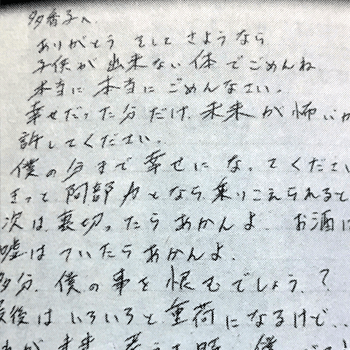 多香子へ
ありがとう そして さようなら
子供が出来ない体でごめんね
本当に 本当に ごめんなさい。
幸せだった分だけ 未来が怖いか
許してください。
僕の分まで幸せになってください
きっと 阿部力となら乗りこえられると
次は、裏切ったらあかんよ お酒に
嘘はついたらあかんよ。
多分、僕の事を恨むでしょう?
最後はいろいろと重荷になるけど..
未来 時、僕